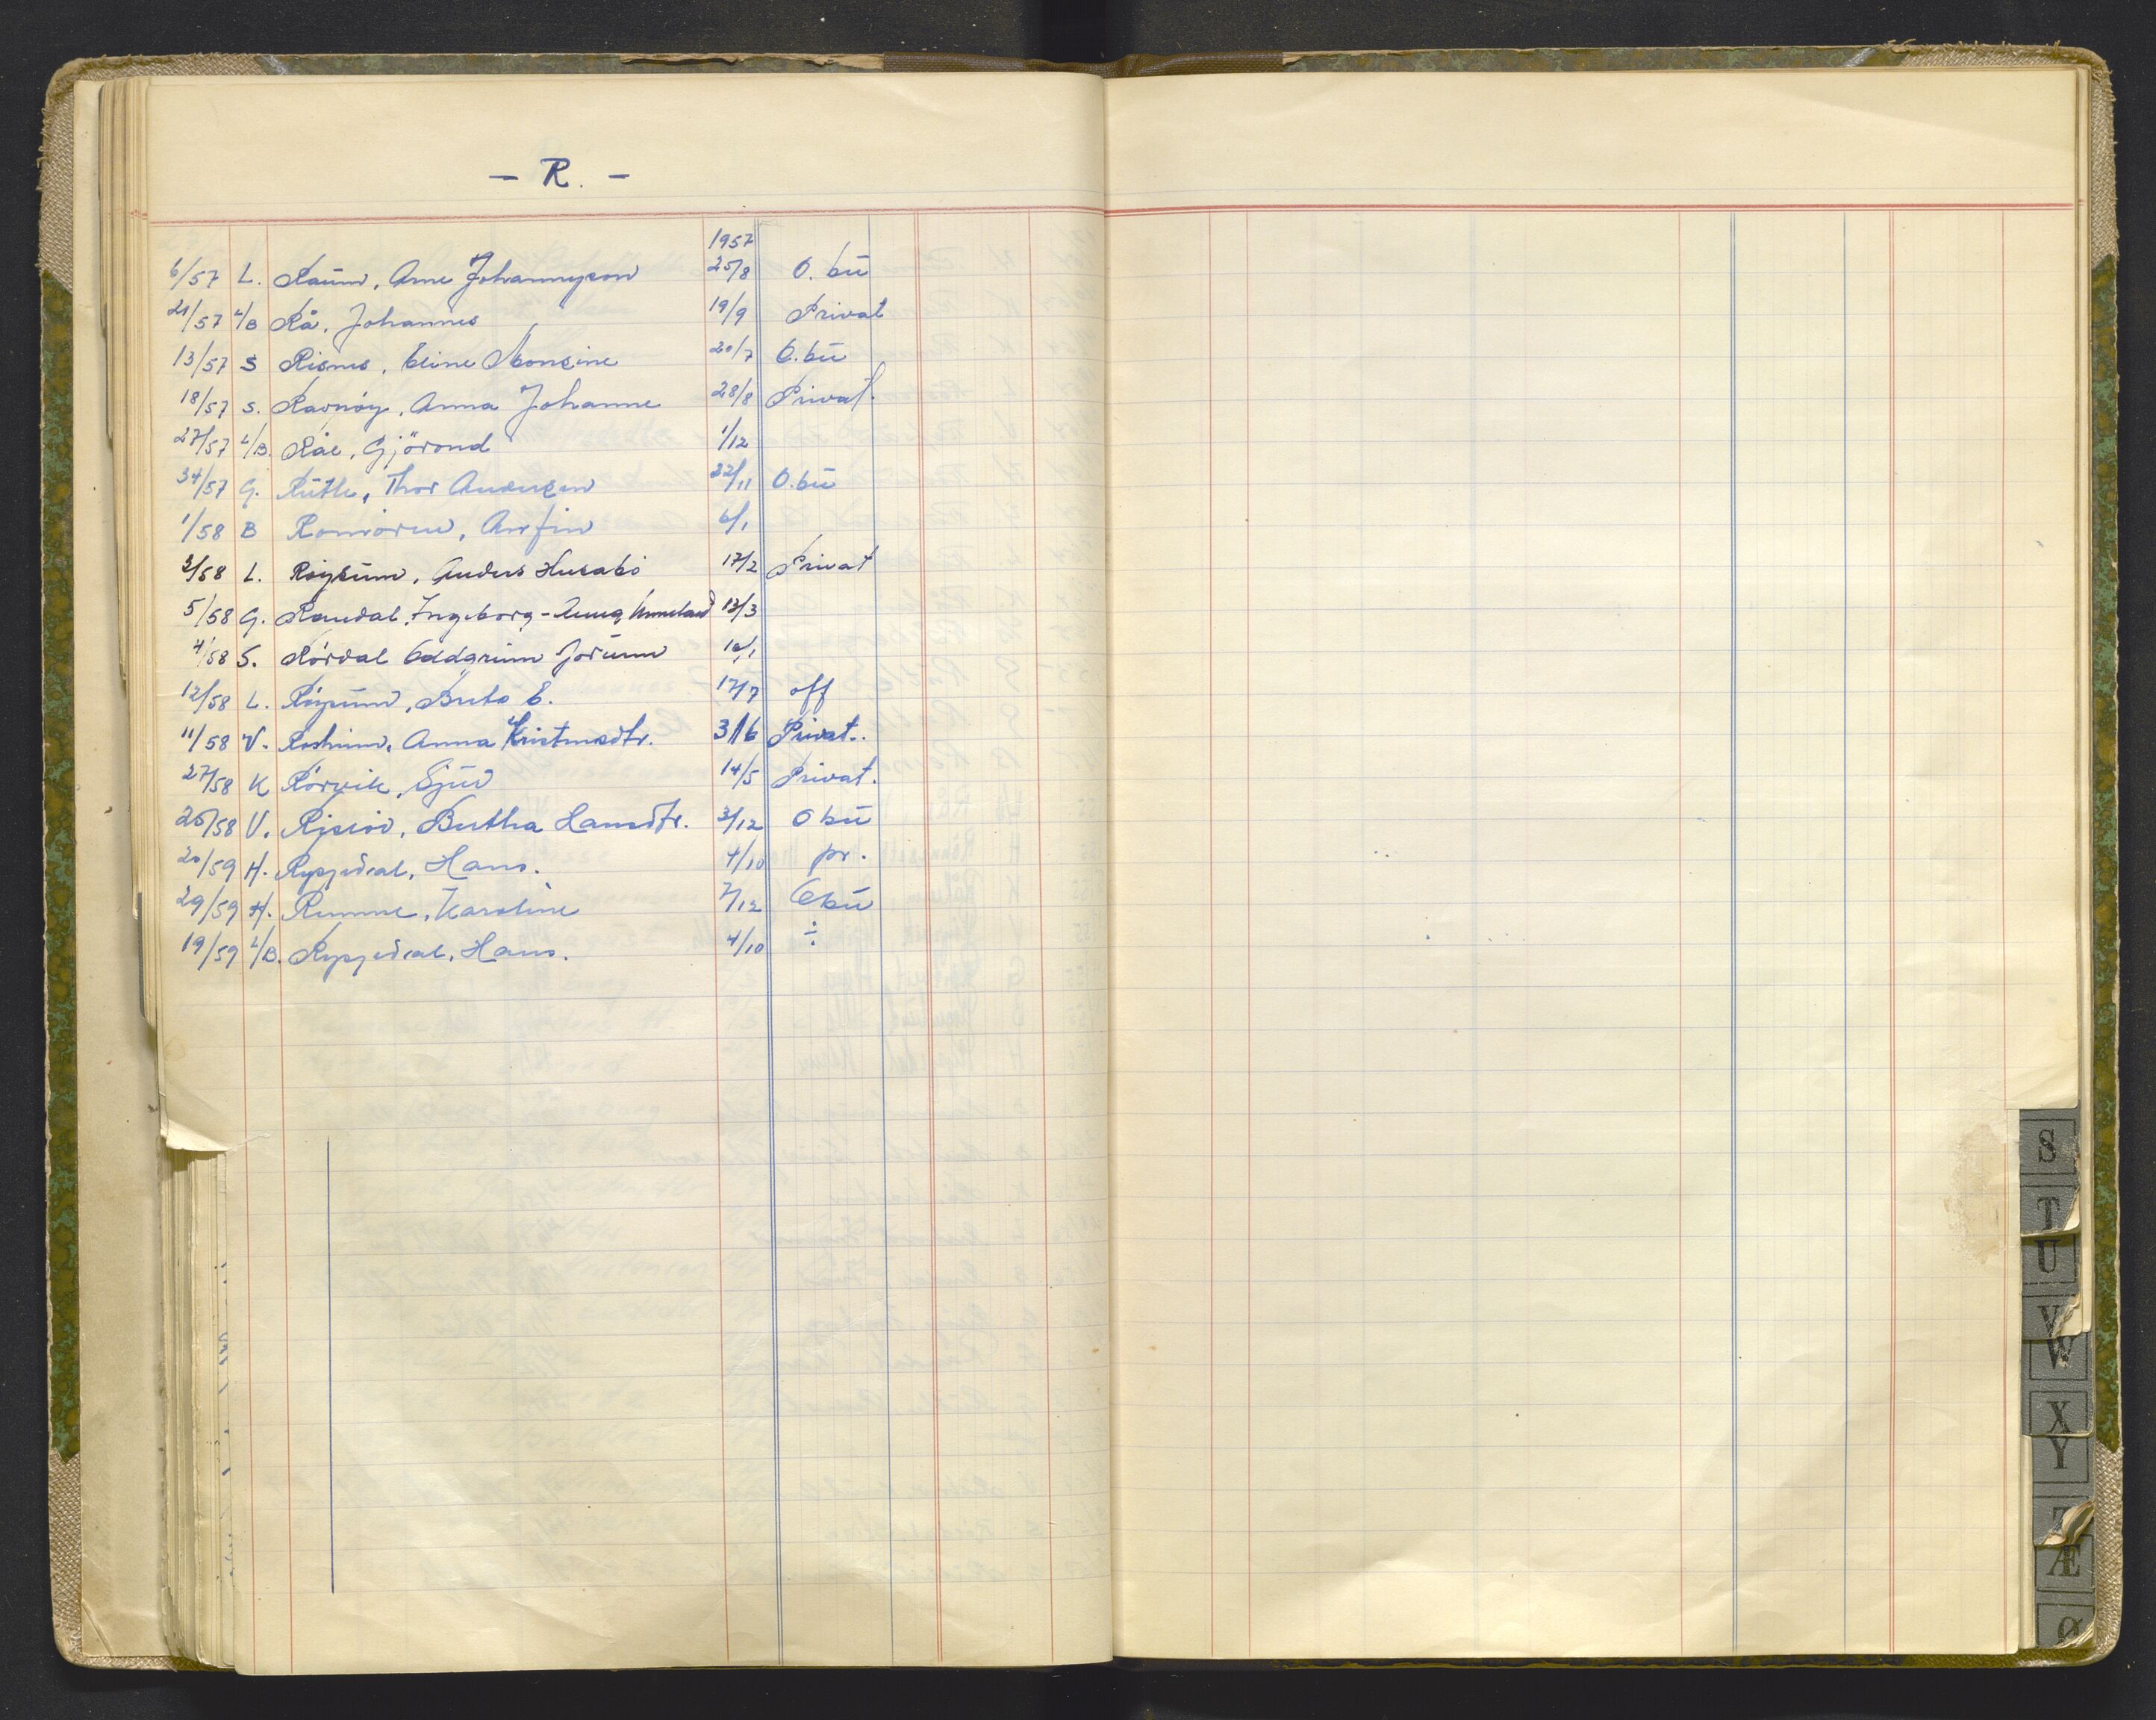 - R. -
1957
6/57 L. Raum, Arne Johannesson 25/8 O. bú
21/57 L/B Rå, Johannes 19/9 Privat
13/57 S Risnes, Eline Monsine 20/7 O. bú
18/57 S. Ravnöy, Anna Johanne 28/8 Privat.
27/57 L/B. Råe, Gjörond 1/12
34/57 G. Rutle, Thor Andersen 22/11 O. bú
1/58 B Romören, Arnfin 6/1
3/58 L. Röysum, Anders Husabö 17/2 Privat
5/58 G. Randal, Ingeborg-Anna 13/3
4/58 S. Rördal Oddgrim Jorunn
12/58 L. Röysum, Brita E. 17/7 off
11/58 V. Anna Kristensdtr. 3/6 Privat.
27/58 K Rörvik, Sjur 14/5 Privat.
V. Bertha Hansdtr. 3/12 O bú
20/59 H. Rysjedal, Hans. 4/10 pr.
29/59 H. Karoline 7/12 O bú
19/59 L/B. Rysjedal, Hans. 4/10 ÷
S
T
U
V
W
X
Y
Z
Æ
Ø